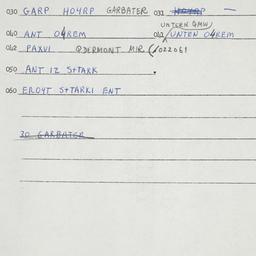 030 GARP HO4RP GARBATER 031 HO4RP —
UNTEN QMW)
040 ANT O4REM 041 UNTEN O4REM
042 PAXVI QDERMONT MIR (1022061
050 ANT IZ S+TARK .
060 ERO4T S+TARKI ENT
30 GARBATER